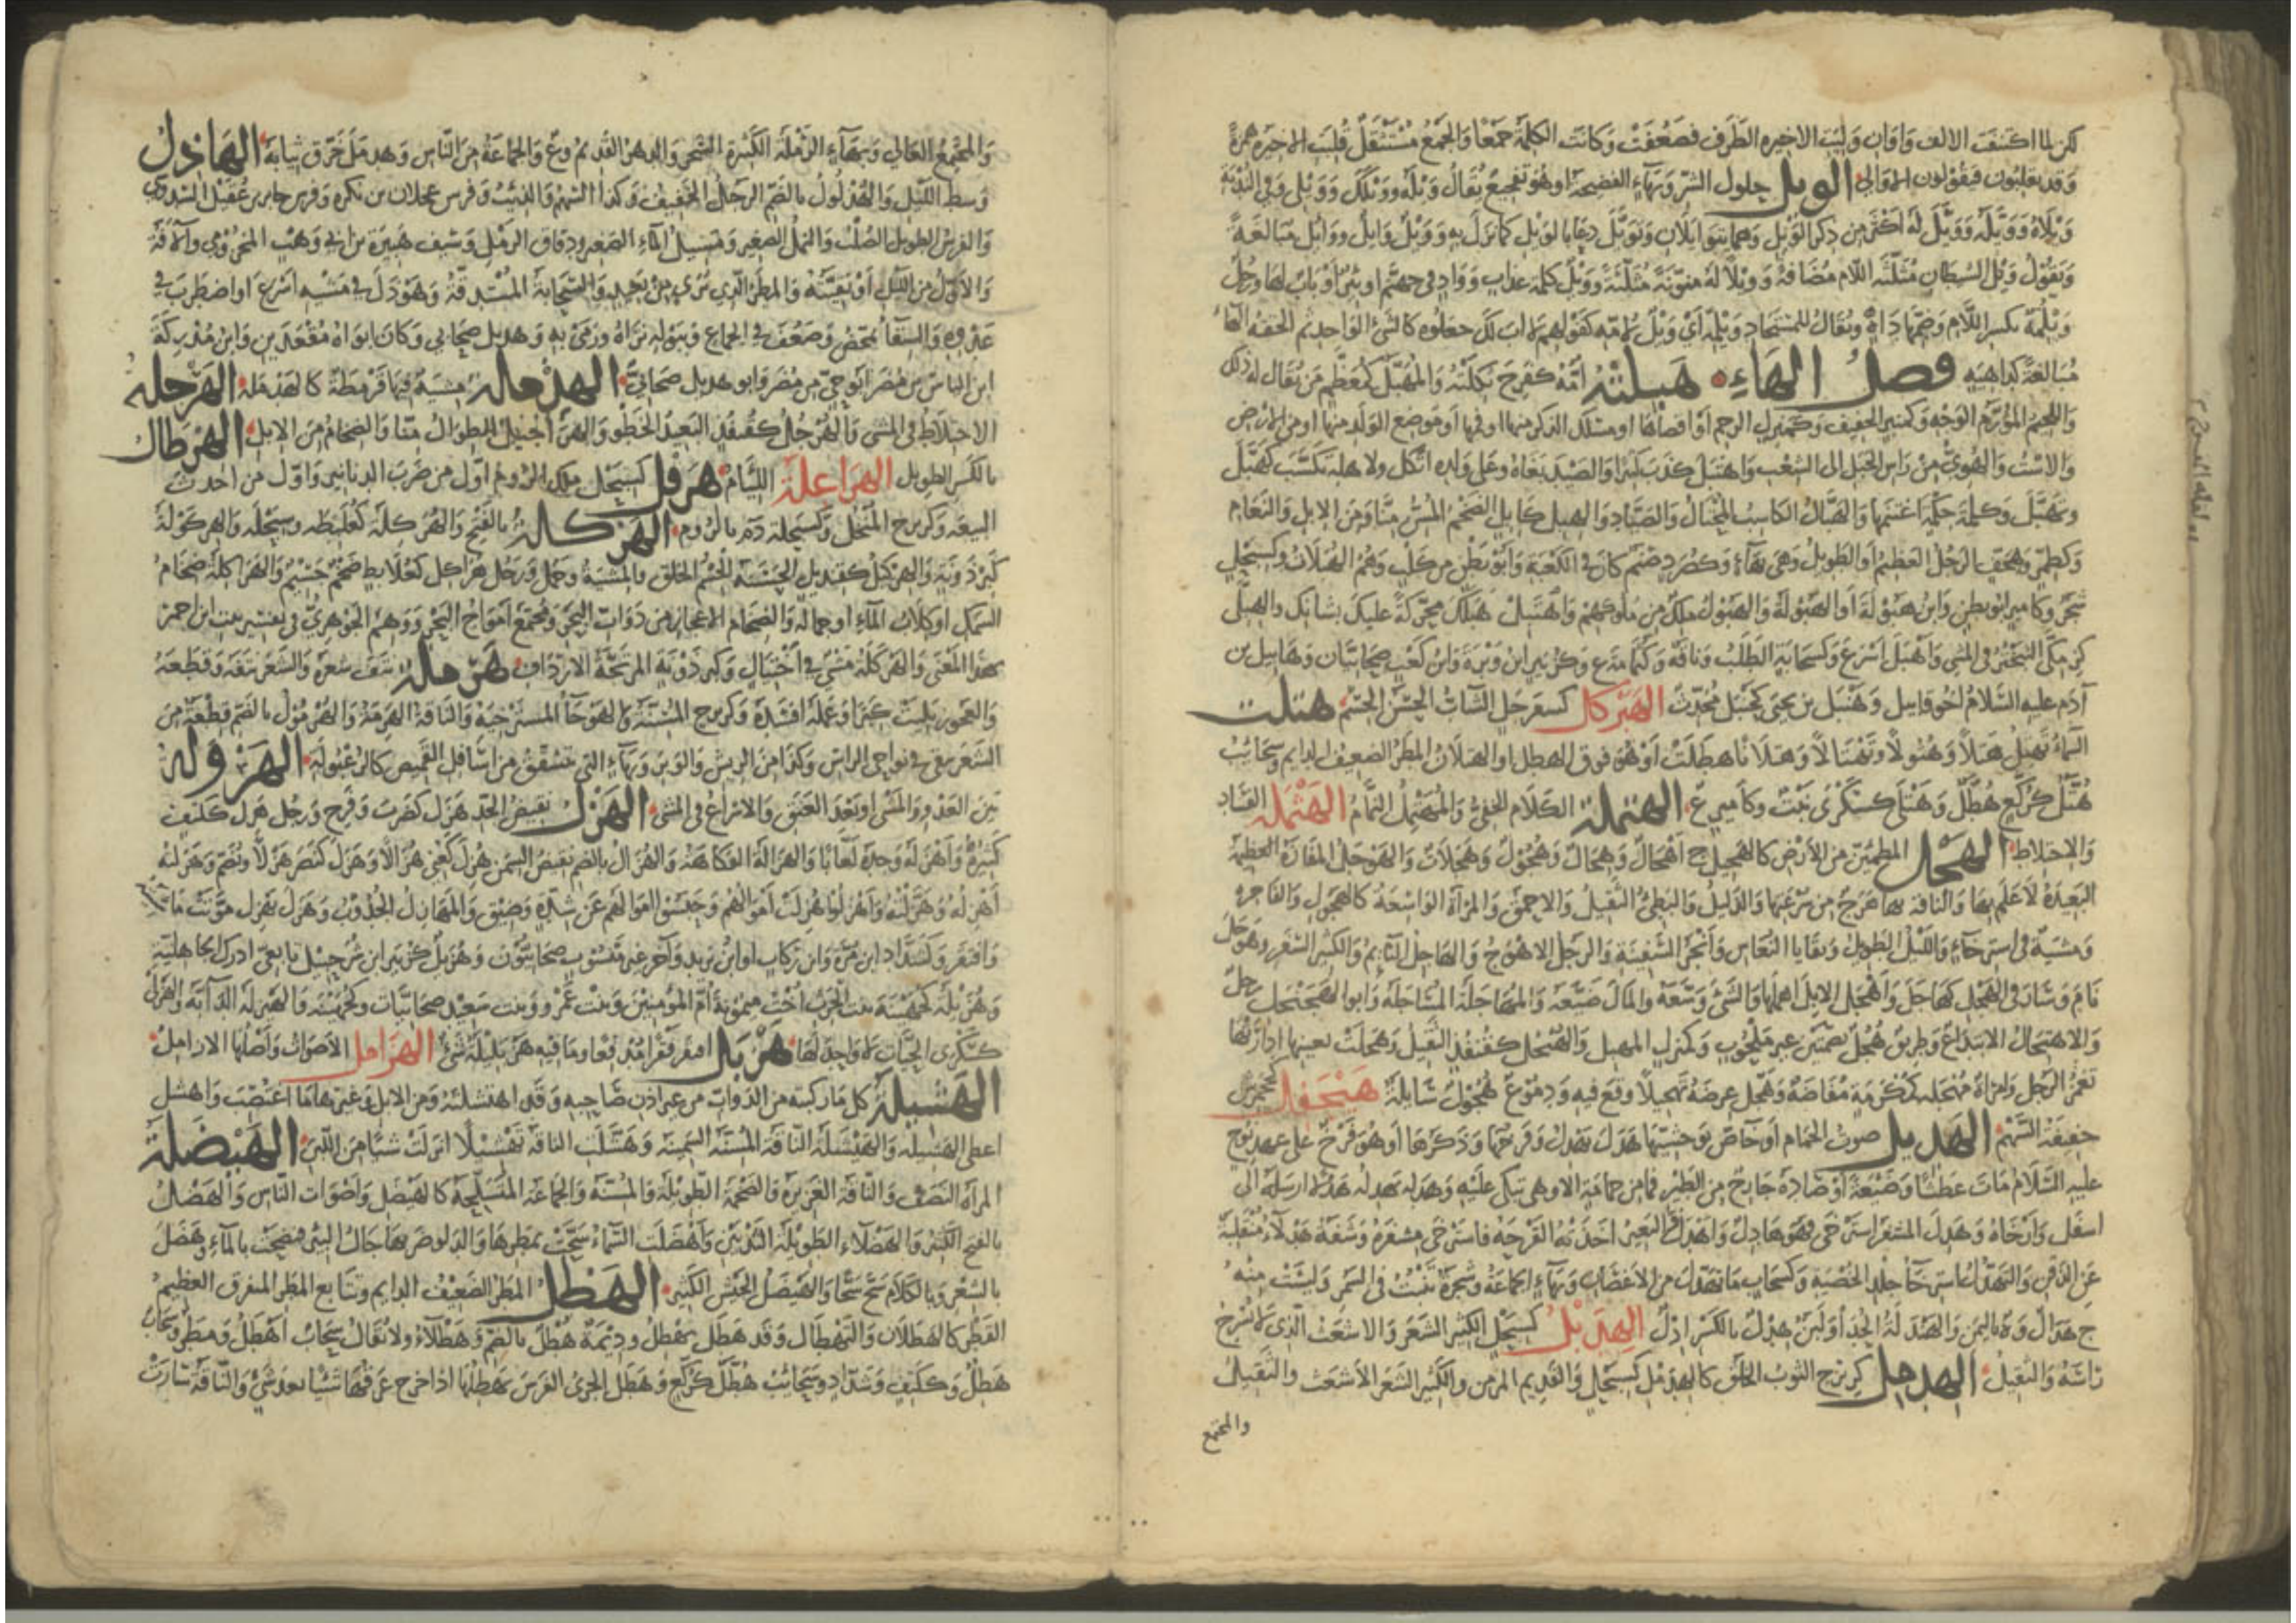 لكن لما اكتنفت الالف واوان وليت الاخيرة الطرف فضعفت وكانت الكلمة جمعا والجمع مستثقل قلبت الاخيرة همزة
وقد يقلبون فيقولون الاوالي الويل حلول الشر وبهاء الفضيحة او هو تفجيع يقال ويله وويلك وويلي وفي الندبة
ويلاه وويله وويل له اكثر من ذكر الويل وهما يتوايلان وتويل دعا بالويل لما نزل به وويل وايل ووائل مبالغة
وتقول ويل الشيطان مثلثة اللام مضافة وويلا له منونة مثلثة وويل كلمة عذاب وواد في جهنم او بئر او باب لها ورجل
ويلمه بكسر اللام وضمها داه ويقال للمستجاد ويلمه اي ويل لامه كقولهم لا اب لك جعلوه كالشئ الواحد ثم الحقه الهاء
مبالغة كداهية فصل الهاء هبلته امه كفرح ثكلته والمهبل كمعظم من يقال له ذلك
واللحيم المورم الوجه وكمنبر الخفيف وكمنزل الرحم او اقصاها او مسلك الذكر منها او فيها او موضع الولد منها او من الارض
والاست والهوي من راس الجبل الى الشعب واهتبل كذب كثيرا والصيد بغاه وعلى ولده اثكل ولاهله تكسب كهبل
وتهبل وكلمة حكمة اغتنمها والهبال الكاسب المحتال والصياد والهبل كابل الضخم المسن منا ومن الابل والنعام
وكطمر وهجف الرجل العظيم او الطويل وهي بهاء وكصرد صنم كان في الكعبة وابو بطن من كلب وهم الهبلات وكسبحل
شجر وكامير ابو بطن وابن هبولة او الهبولة والهبول ملك من ملوكهم واهتبل هبلك محركة عليك بشانك والهبلى
كزمكى التبختر في المشي واهبل اسرع وكسحابة الطلب وناقة وكثمامة ع وكزبير ابن وبرة وابن كعب صحابيان وهابيل بن
آدم عليه السلام اخو قابيل وهنبل بن يحيى كجنبل محدث الهبركل كسفرجل الشاب الحسن الجسم هتلت
السماء تهتل هتلا وهتولا وتهتالا وهتلانا هطلت او هو فوق الهطل او الهتلان المطر الضعيف الدايم وسحائب
هتل كركع هطل وهتلى كسكرى نبت وكامير ع الهتملة الكلام الخفي والمهتمل النمام الهثملة الفساد
والاختلاط الهجل المطمئن من الارض كالهجيل ج اهجال وهجال وهجول وهجلات والهوجل المفازة العظيمة
البعيدة لا علم بها والناقة بها هوج من سرعتها والدليل والبطئ الثقيل والاحمق والمراة الواسعة كالهجول والفاجرة
ومشية في استرخاء والليل الطويل وبقايا النعاس وانجر السفينة والرجل الاهوج والهاجل النايم والكثير السفر وهوجل
نام وسار في الهجل كهاجل واهجل الابل اهملها والشئ وسعه والمال ضيعه والمهاجلة المساجلة وابو الهجنجل رجل
والاهتجال الابتداع وطريق هجل بضمتين غير ملحوب وكمنزل المهبل والهنجل كقنفذ الثقيل وهجلت بعينها ادارتها
تغمز الرجل وامراة مهجلة كمكرمة مفضاة وهجل عرضه تهجيلا وقع فيه ودموع هجول سايلة هنجفل كجحمرش
خفيفة السهم الهديل صوت الحمام او خاص بوحشيتها هدل يهدل وفرخها وذكرها او هو فرخ على عهد نوح
عليه السلام مات عطشا وضيعة او صاده جارح من الطير فما من حمامة الا وهي تبكي عليه وهدله يهدله هدلا ارسله الى
اسفل وارخاه وهدل المشفر استرخى فهو هادل واهدل والبعير اخذته القرحة فاسترخى مشفره وشفة هدلاء منقلبة
عن الذقن والتهدل استرخاء جلد الخصية وكسحاب ما تهدل من الاغصان وبهاء الجماعة وشجرة تنبت في السمر وليست منه
ج هدال وة باليمن والهندلة الجدا ولبن هدل بالكسر ادل الهدبل كسبحل الكثير الشعر والاشعث الذي لا يسرح
راسه والثقيل الهدمل كزبرج الثوب الخلق كالهدمل كسبحل والقديم المزمن والكثير الشعر الاشعث والثقيل
والمجتمع
والمجتمع العالي وبهاء الرملة الكثيرة الشجر والدهر القديم وع والجماعة من الناس وهدمل خرق ثيابه الهاذل
وسط الليل والهذلول بالضم الرجل الخفيف وكذا السهم والذئب وفرس عجلان بن نكرة وفرس جابر بن عقيل السدوسي
والفرس الطويل الصلب والتل الصغير ومسيل الماء الصغير ودقاق الرمل وسيف هبيرة بن ابي وهب المخزومي
والاول من الليل او بقيته والمطر الذي يرى من بعيد والسحابة المستدقة وهوذل في مشيه اسرع او اضطرب في
عدوه والسقا تمخض وضعف في الجماع وببوله نزاه ورمى به وهذيل صحابي وكان ابواه مقعدين وابن مدركة
ابن الياس بن مضر ابو حي من مضر وابو هذيل صحابي الهذملة مشية فيها قرمطة كالهذملة الهرجلة
الاختلاط في المشي والهرجل كقنفذ البعيد الخطو والهراجيل الطوال منا والضخام من الابل الهرطال
بالكسر الطويل الهراعلة اللئام هرقل كسبحل ملك الروم اول من ضرب الدنانير واول من احدث
البيعة وكزبرج المنخل وكسبحلة دم بالروم الهركلة بالفتح والهركلة كعلبطة وسبحلة والهركولة
كبرذونة والهركيل كقنديل الحسنة الجسم الخلق والمشية وجمل ورجل هراكل كعلابط ضخم جسيم والهراكلة ضخام
السمك او كلاب الماء او جماله والضخام الاعجاز من دواب البحر ومجتمع امواج البحر ووهم الجوهري في تفسير بيت ابن احمر
بهذا المعنى والهركلة مشي في اختيال وكبرذونة المرتجة الارداف هرمله نتف شعره والشعر نتفه وقطعه
والعجوز بليت كبرا وعمله افسده وكزبرج المسنة والهوجاء المسترخية والناقة الهرمة والهرمول بالضم قطعة من
الشعر تبقى في نواحي الراس وكذا من الريش والوبر وبهاء التي تشقق من اسافل القميص كالرعبولة الهرولة
بين العدو والمشي او بعد العنق والاسراع في المشي الهزل نقيض الجد هزل كضرب وفرح ورجل هزل ككتف
كثيره واهزله وجده لعابا والهزالة الفكاهة والهزال بالضم نقيض السمن هزل كعني هزالا وهزل كنصر هزلا ويضم وهزلته
اهزله وهزلته واهزلوا هزلت اموالهم وحبسوا اموالهم عن شدة وضيق والمهازل الجدوب وهزل يهزل موتت ماشيته
وافتقر وكشداد ابن مرة وابن ذياب او ابن يزيد وآخر غير منسوب صحابيون وهزيل كزبير ابن شرحبيل تابعي ادرك الجاهلية
وهزيلة كجهينة بنت الحرث اخت ميمونة ام المؤمنين وبنت عمرو وبنت سعيد صحابيات
كسكرى الحيات لا واحد لها هزبل افتقر فقرا مدقعا وما فيه هزبليلة شئ الهزامل الاصوات واصلها الازامل
الهشيلة كل ما ركبته من الدواب من غير اذن صاحبه وقد اهتشلته ومن الابل وغيرها ما اغتصب واهشل
اعطى الهشيلة والهيشلة الناقة المسنة السمينة وهشلت الناقة تهشيلا انزلت شيا من اللبن الهيضلة
المراة النصف والناقة الغزيرة والضخمة الطويلة والمسنة والجماعة المتسلحة كالهيضل واصوات الناس والهضل
بالفتح الكثير والهضلاء الطويلة الثديين واهضلت السماء سحت بمطرها والدلو ضربها جال البئر فنضحت بالماء وهضل
بالشعر وبالكلام سح سحا والهيضل الجيش الكثير الهطل المطر الضعيف الدايم وتتابع المطر المتفرق العظيم
القطر كالهطلان والتهطال وقد هطل يهطل وديمة هطل بالضم وهطلاء ولا يقال سحاب اهطل ومطر وسحاب
هطل وككتف وشداد وسحائب هطل كركع وهطل الجري الفرس يهطلها اذا خرج عرقها شيا بعد شئ والناقة سارت